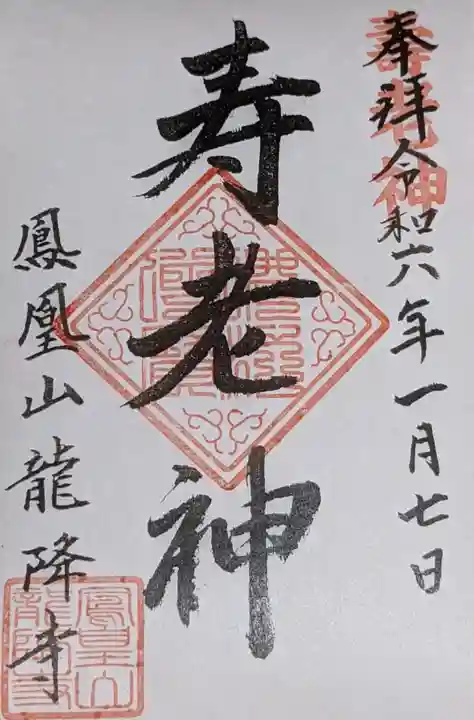 奉拝令和六年一月七日
壽老神
寿老神
鳳凰山龍降寺
鳳凰山龍降寺